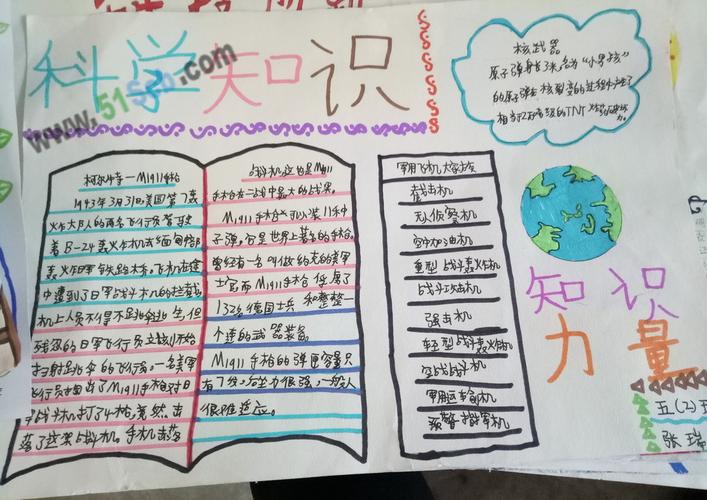 科学知识
www.51
.com
核武器
原子弹身长3米,名为“小男孩”
的原子弹在核裂变的过程中产生了
相当于2万
的TNT
柯尔特一M1911手枪
1943年3月31日美国第7轰
炸大队的两名飞行员驾驶
着B-24轰炸机去缅甸
轰炸日军铁路桥。飞机在途
中遭到了日军战斗机的拦截
机上人员不得不跳伞逃生,但
残忍的日军飞行员立刻开始
扫射跳伞的飞行员。一名美军
飞行员掏出了M1911手枪对日
战斗机打了4枪,竟然击
落了这架战斗机。手枪击落
战斗机这也是M1911
手枪在二战中最大的战果。
M1911手枪可以装11手
子弹,它是世界上著名的手枪。
曾经有一名叫做约克的美军
士官用M1911手枪俘虏了
132名德国士兵和整整一
个连的武器装备。
M1911手枪的弹匣容量只
有7发,后坐力很强,一般人
很难适应。
军用飞机大家族
截击机
无人侦察机
空中加油机
重型战斗轰炸机
战斗攻击机
强击机
轻型战斗轰炸机
空战战斗机
军用运输机
预警指挥机
知识
力量
五(2)
张瑞